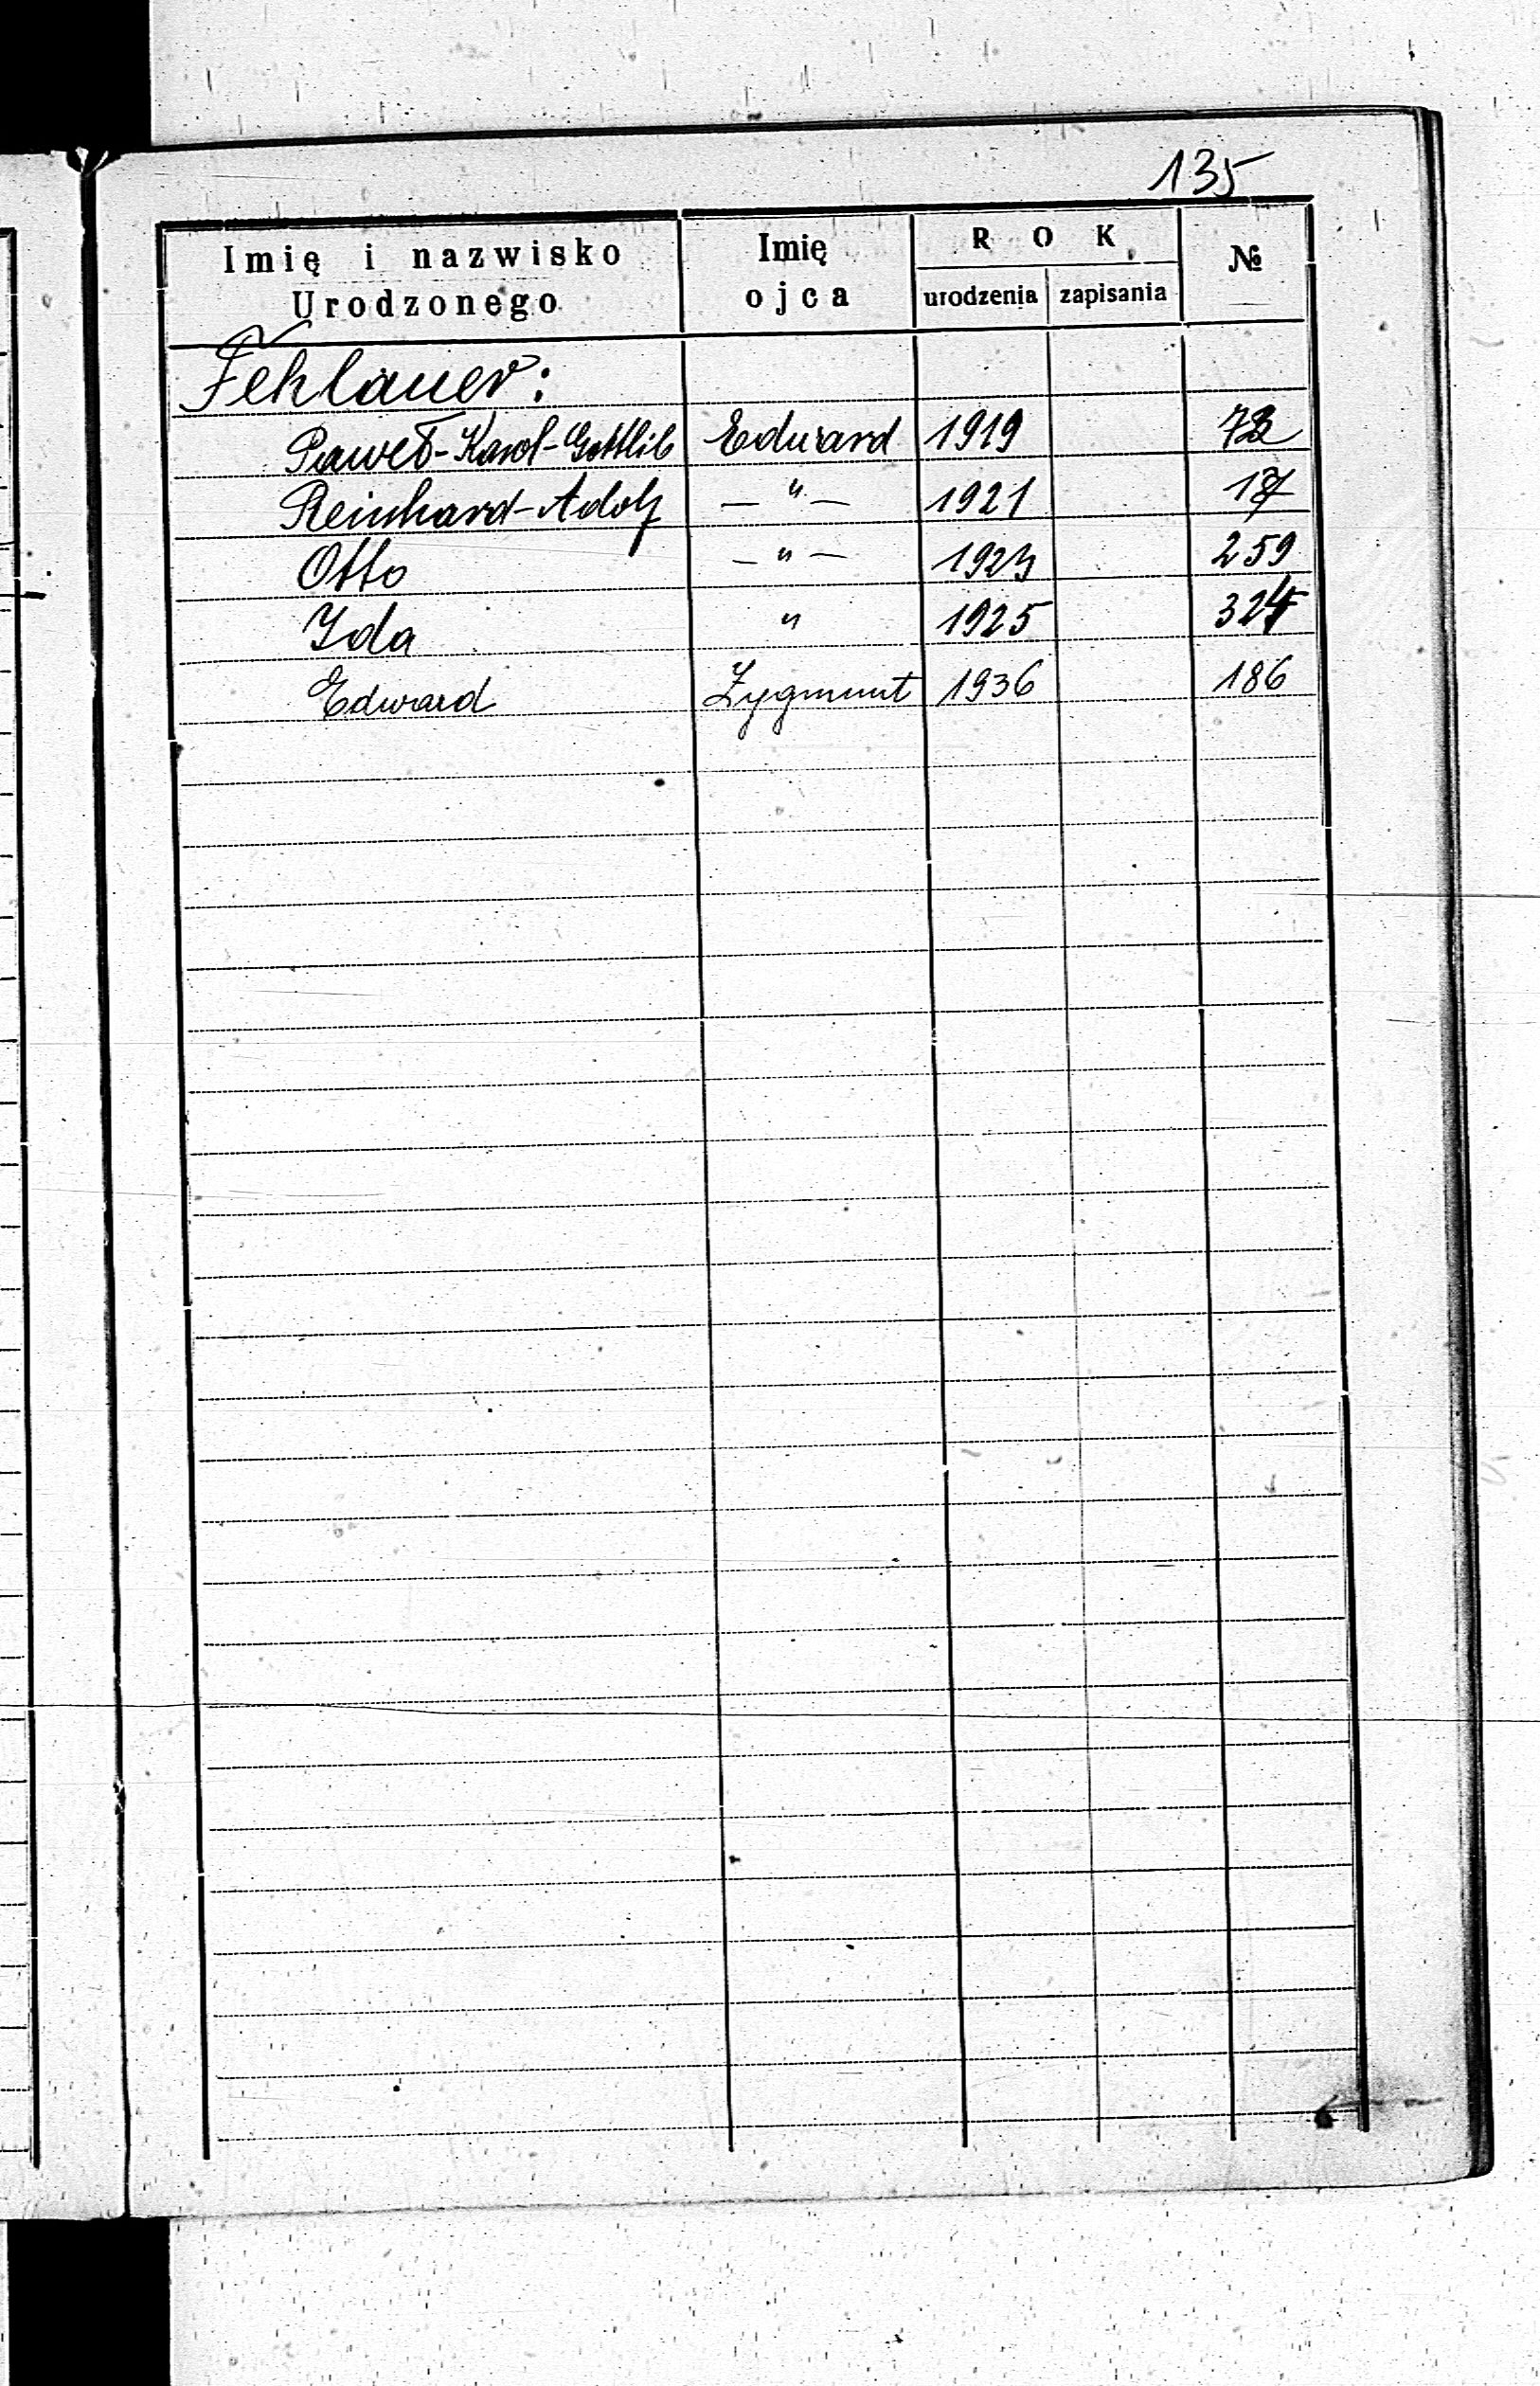 135
Imię i nazwisko Urodzonego Imię ojca ROK urodzenia zapisania №
Fehlauer:
Paweł-Karol-Gottlib Eduard 1919
Reinhard-Adolf — " — 1921
Otto — " — 259
Ida " 1925 324
Edward Zygmunt 1936 186